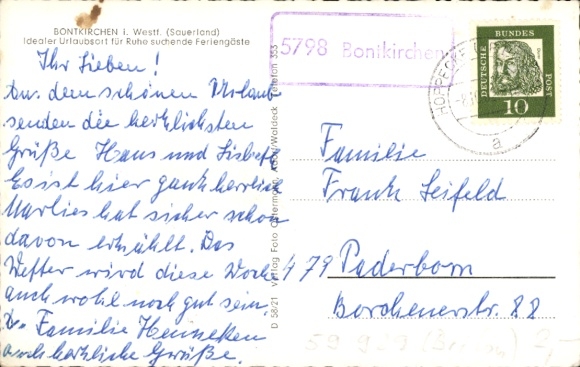 BONTKIRCHEN i. Westf. (Sauerland)
Idealer Urlaubsort für Ruhe suchende Feriengäste
Ihr Lieben!
Aus dem schönen Urlaub
senden die herzlichsten
Grüße Hans und Lisbeth
Es ist hier ganz herrlich
Marlies hat sicher schon
davon erzählt. Das
Wetter wird diese Woche
auch wohl noch gut sein.
Familie Heineken
auch herzliche Grüße.
D 58/21 Verlag Foto Ostermann, Adorf/Waldeck Telefon 353
5798 Bontkirchen
HOPPECKE
a
DEUTSCHE BUNDES POST
10
Familie
Frank Seifeld
479 Paderborn
Borchenerstr. 88
59 929
2,-